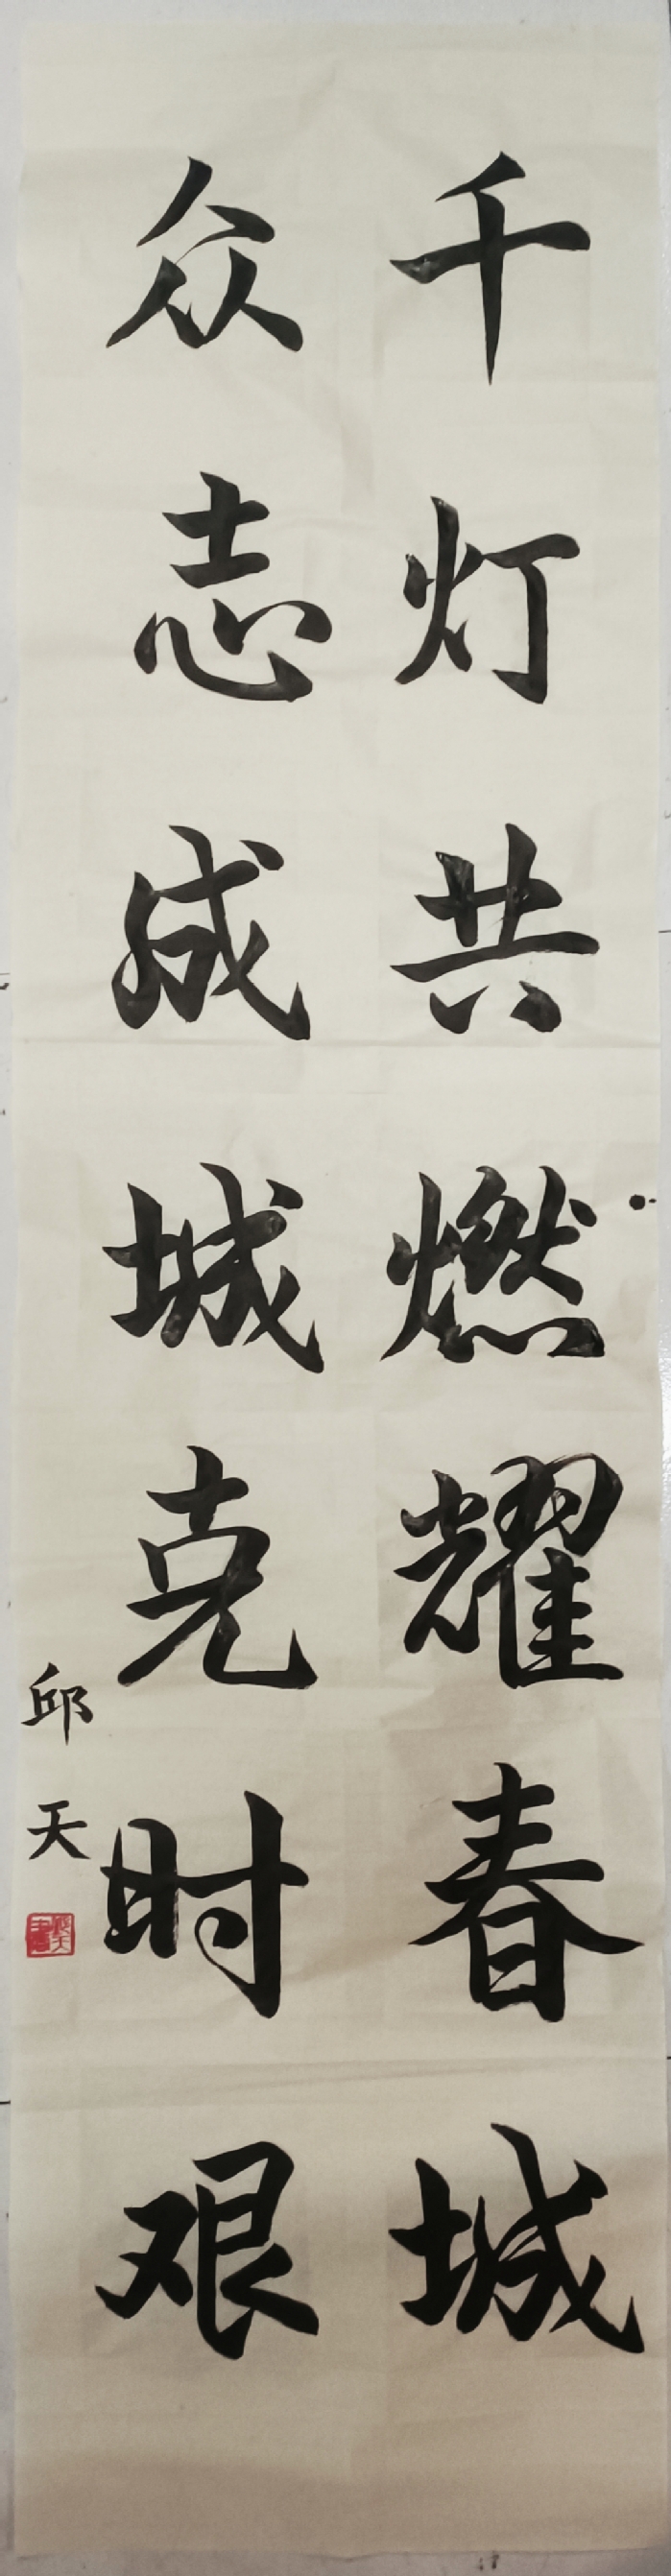 千灯共燃耀春城
众志成城克时艰
邱天